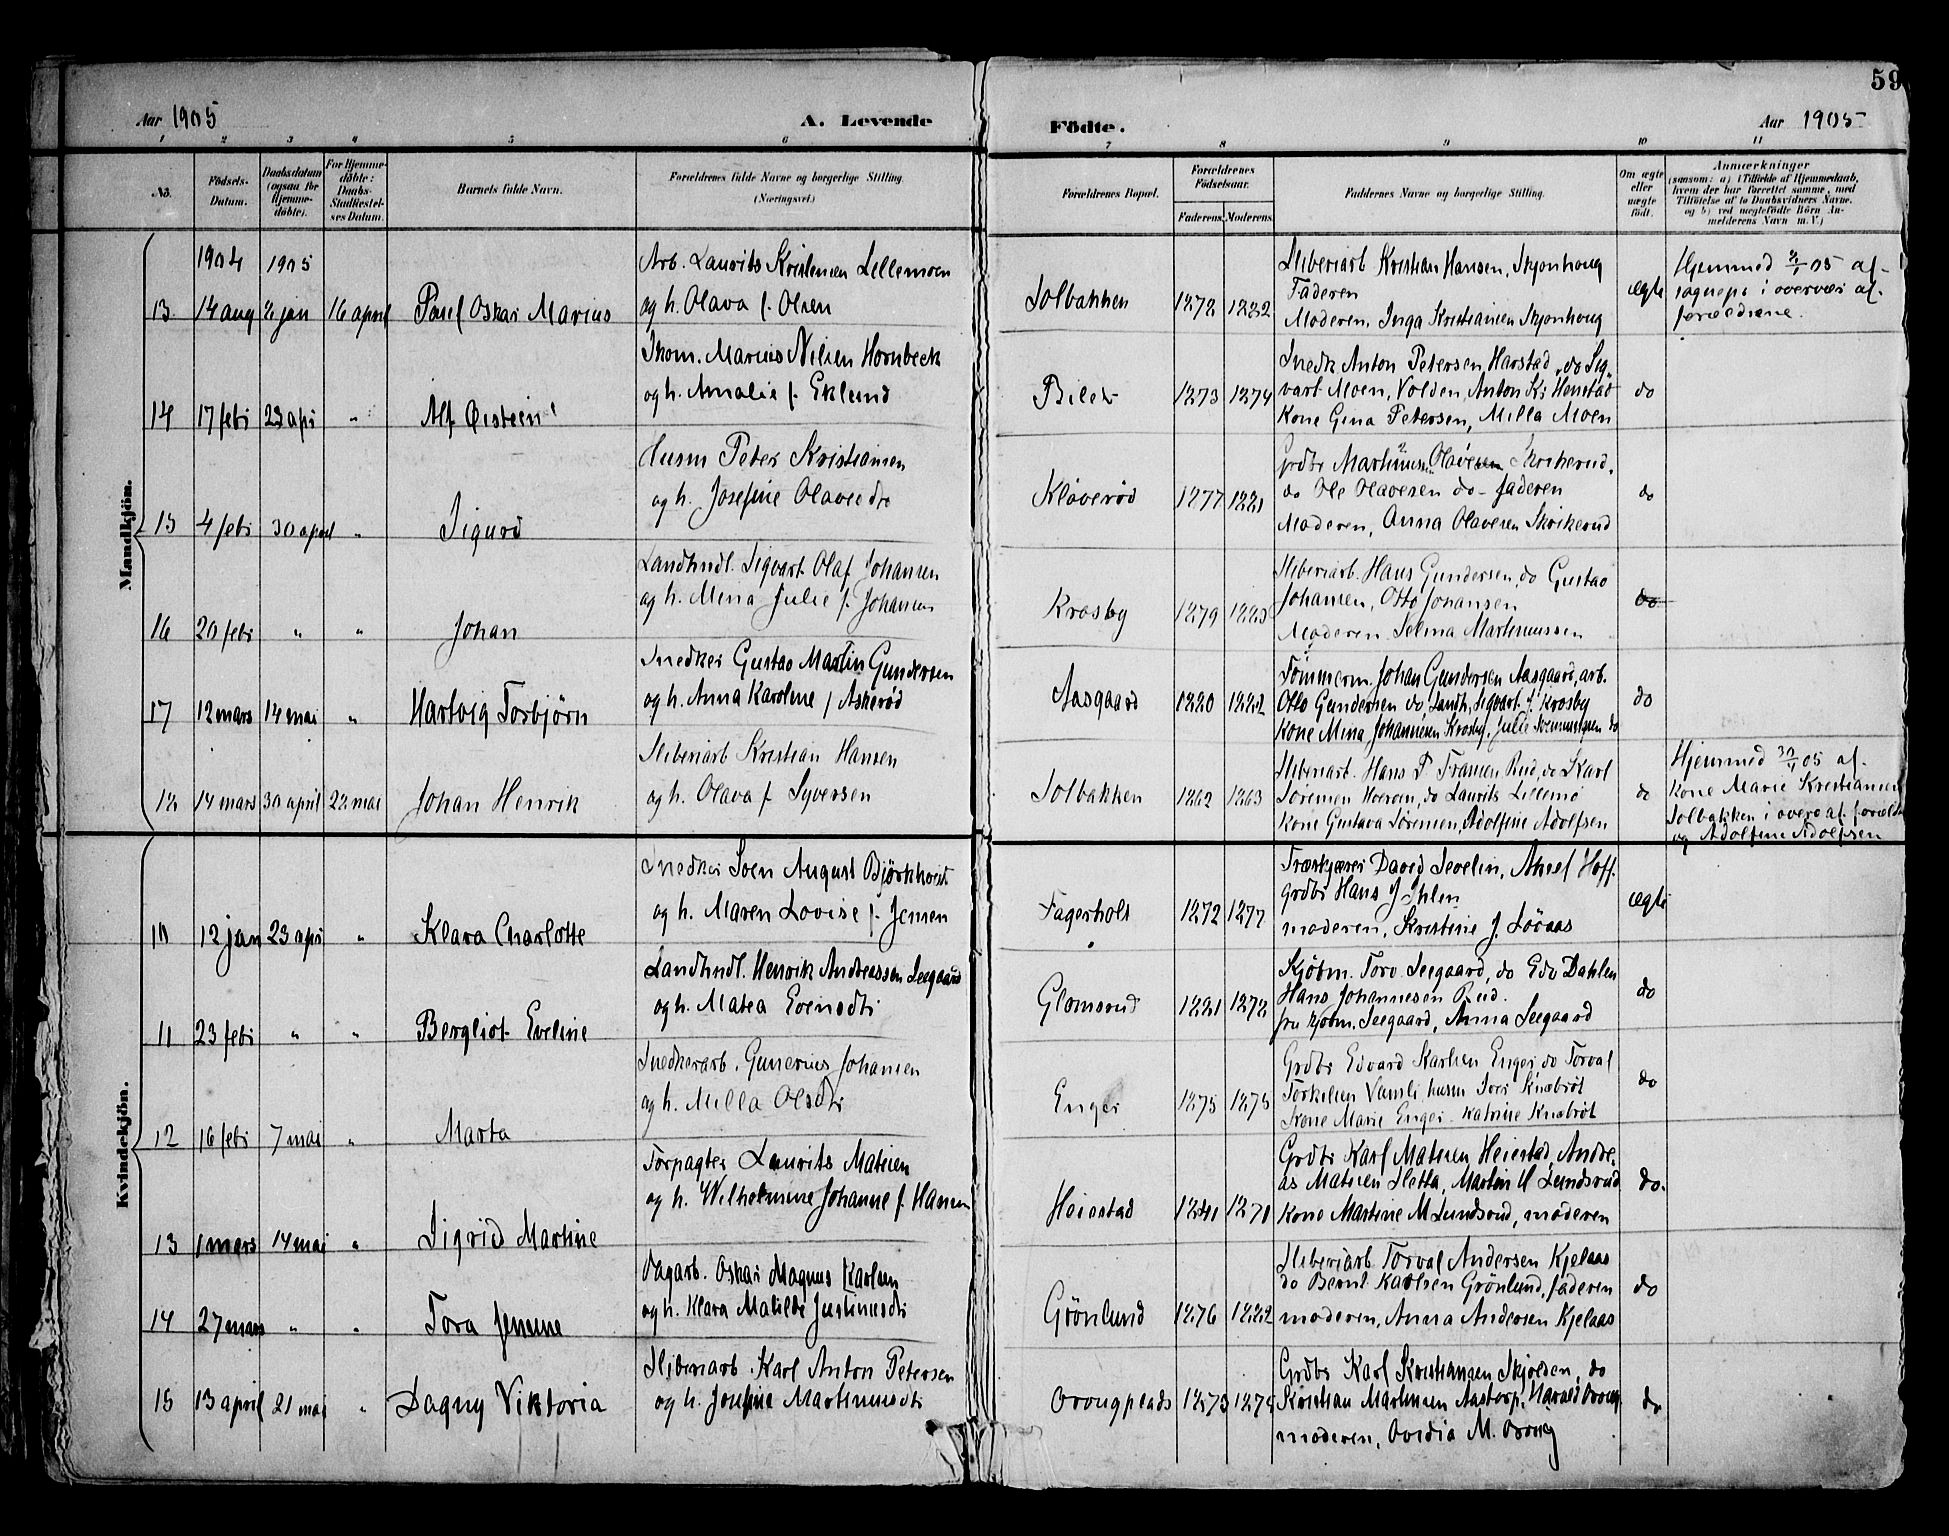 59
Aar 1905
A. Levende
Födte.
Aar 1905
1 2 3 4 5 6 7 8 9 10 11
No.
Födsels-Datum.
Daabsdatum (ogsaa for Hjemmedöbte).
For Hjemmedöbte: Daabs-Stadfæstelses Datum.
Barnets fulde Navn.
Forældrenes fulde Navne og borgerlige Stilling. (Næringsvei.)
Forældrenes Bopæl.
Forældrenes Födselsaar.
Faderens. Moderens.
Faddernes Navne og borgerlige Stilling.
Om ægte eller uægte födt.
Anmærkninger
(saasom: a) i Tilfælde af Hjemmedaab, hvem der har forrettet samme, med Tilföielse af to Daabsvidners Navne. og b) ved uægtefödte Börn Anmelderens Navn m. V.)
Mandkjön.
1904 1905
13 14 aug jan 16 april Paul Oskar Marius
Arb. Laurits Kristensen Lillemoen
og h. Olava f. Olsen
Solbakken 1872 1882
Sliberiarb Kristian Hansen, Skjonhoug
Faderen
Moderen, Inga Kristiansen Skjonhoug
ægte
Hjemmed 05 af
sognepr i overvær af
forældrene.
14 17 febr 23 apr " Alf Øistein
Skom. Marius Nilsen Hornbeck
og h. Amalie f. Eklund
1873 1874
Snedk Anton Petersen, Harstad, do Sig-
vart Moen, Volden, Anton Kr Henstad
Kone Gina Petersen, Milla Moen
do
15 4 febr 30 april " Sigurd
Husm Peter Kristiansen
og h. Josefine Olavesdtr
Kløverød 1877 1881
Grdbr Martinius Olavesen Skrikerud,
do Ole Olavesen do - faderen
Moderen, Anna Olavesen Skrikerud
do
16 20 febr " " Johan
Landhndl. Sigvart Olaf Johansen
og h. Mina Julie f. Johansen
Krosby 1879 1883
Sliberiarb. Hans Gundersen, do Gustav
Johansen, Otto Johansen
Moderen. Selma Martinussen
do
17 12 mars 14 mai " Hartvig Torbjørn
Snedker Gustav Martin Gundersen
og h. Anna Karoline f Askerød
Aasgaard 1880 1882
Tømmerm. Johan Gundersen Aasgaard, arb.
Otto Gundersen do, Landh. Sigvart J. Krosby
Kone Mina Johannesen Krosby, Julie do
do
18 14 mars 30 april 28 mai Johan Henrik
Sliberiarb Kristian Hansen
og h. Olava f Syversen
Solbakken 1862 1863
Sliberiarb. Hans P Fransen Rud, do Karl
Sørensen do Laurits Lillemo
Kone Gustava Sørensen, Adolfine Adolfsen
do
Hjemmed 05 af
Kone Marie Kristiansen
Solbakken i overv af foræld
og Adolfine Adolfsen
Kvindekjön.
10 12 jan 23 apr " Klara Charlotte
Snedker Sven August Bjørkkvist
og h. Maren Lovise f. Jensen
Fagerholt 1872 1877
Træskjærer David Sevelin, Aksel Hoff
grdbr Hans J Ihlen
moderen, Kristine J. Løvaas
ægte
11 23 febr " " Bergliot Eveline
Landhndl. Henrik Andreassen Seegaard
og h. Matea Evensdtr
Glomsrud 1881 1872
Kjøbm. Torv. Seegaard, do Edv Dahlen
Hans Johannesen Rud.
fru Kjøbm. Seegaard, Anna Seegaard
do
12 16 febr 7 mai " Marta
Snedkerarb. Gunerius Johansen
og h. Milla Olsdtr
Enger 1875 1875
Grdbr Edvard Karlsen Enger, do Torval
Torkilsen Vamli husm Iver Knabrøt
Kone Marie Enger. Katrine Knabrøt
do
13 1 mars 14 mai " Sigrid Martine
Forpagter Laurits Matisen
og h. Wilhelmine Johanne f. Hansen
Heiestad 1841 1871
Grdbr Karl Matisen Heiestad, Andre-
as Matisen Sletta, Martin M Lundsrud
Kone Martine M Lundsrud, moderen
do.
14 27 mars " " Tora Jensine
Dagarb. Oskar Magnus Karlsen
og h. Klara Matilde Justinusdtr
Grönlund 1876 1882
Sliberiarb Torval Andersen Kjelaas
do Bernt Karlsen Grönlund, faderen
moderen, Anna Andersen Kjelaas
do
15 13 april 21 mai " Dagny Viktoria
Sliberiarb. Karl Anton Petersen
og h. Josefine Martinusdtr
1873 1874
Grdbr Karl Kristiansen Skjolsen, do
Kristian Martinsen Aastorp, Harald
moderen, Ovidia M.
do